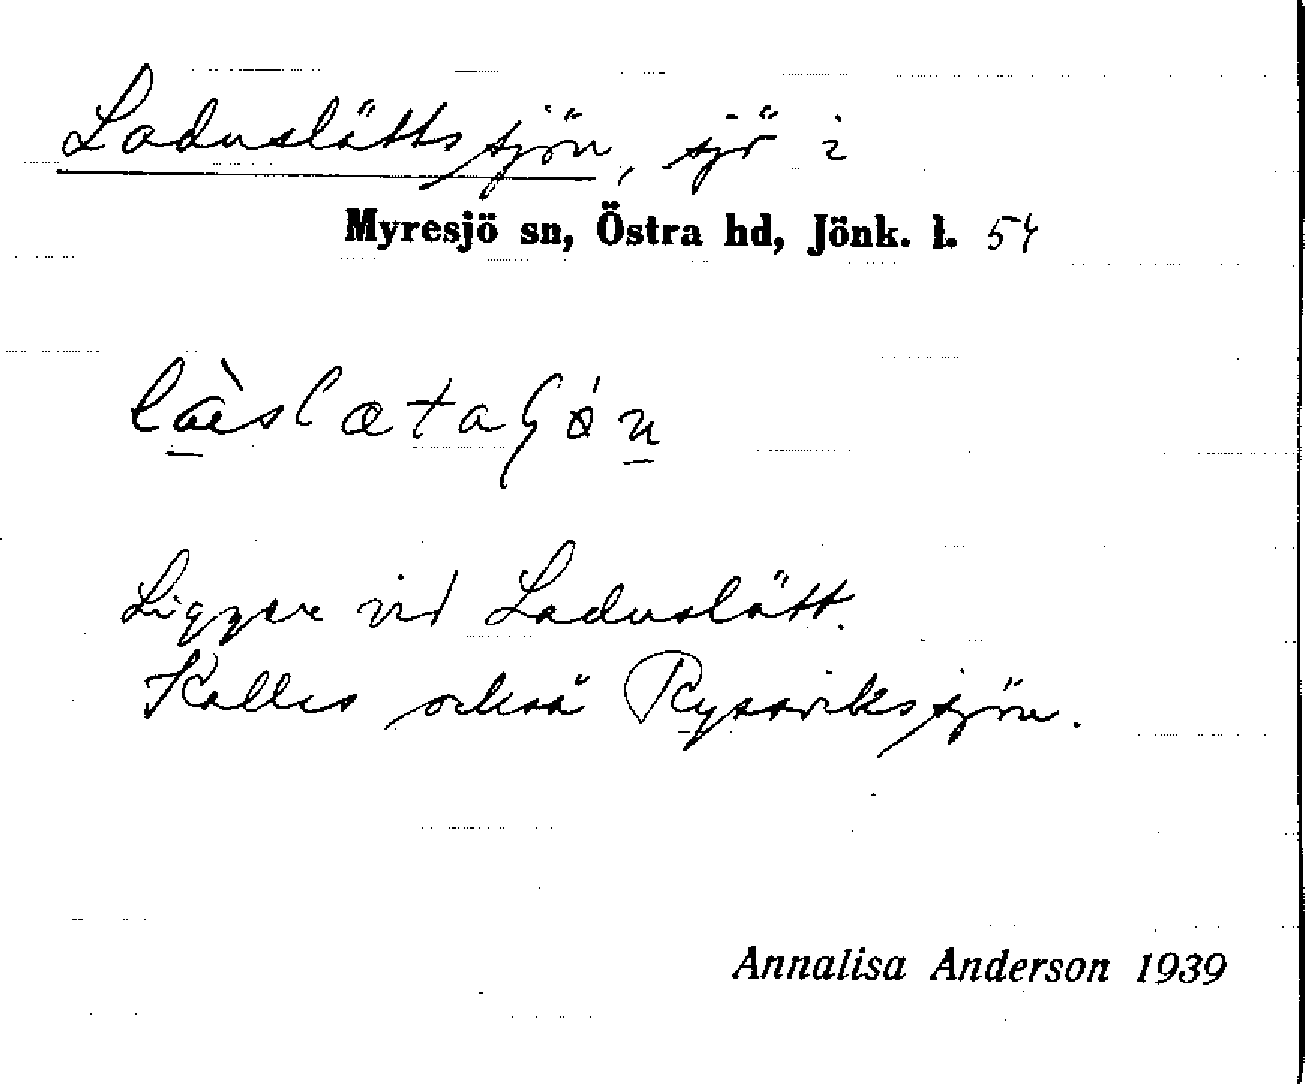 Laduslättssjön, sjö i
Myresjö sn, Östra hd, Jönk. l. 54
Ligger vid Laduslätt.
Kallas också Ryssvikssjön.
Annalisa Anderson 1939